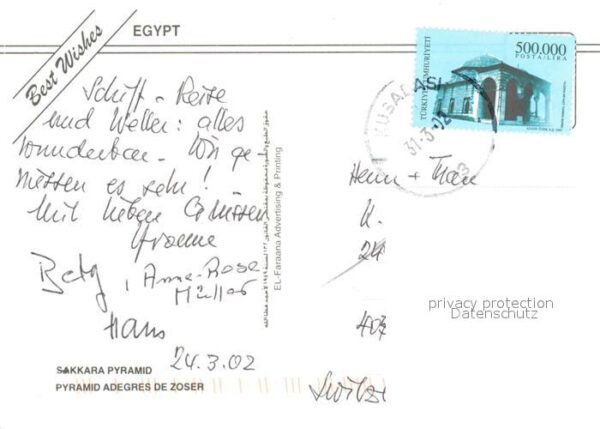 Best Wishes
EGYPT
Schiff - Reise
und Wetter: alles
wunderbar. Wir ge
niessen es sehr!
Mit lieben Grüssen
Yvonne
Anne-Rose
Müller
Hans
24.3.02
SAKKARA PYRAMID
PYRAMID ADEGRES DE ZOSER
EL-Faraana Advertising & Printing
TÜRKİYE CUMHURİYETİ
500.000
POSTA / LİRA
KUŞADASI
31.3.02
Herrn + Frau
K.
24
privacy protection
Datenschutz